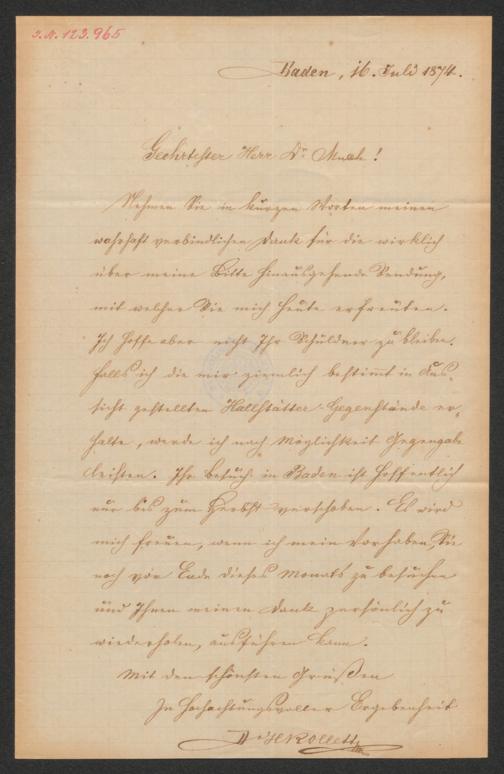 J.N. 123.965
Baden, 16. Juli 1874.
Geehrtester Herr Dr Much!
Nehmen Sie in kurzen Worten meinen
wahrhaft verbindlichen Dank für die wirklich
über meine Bitte hinausgehende Sendung,
mit welcher Sie mich heute erfreuten.
Ich hoffe aber nicht Ihr Schuldner zu bleiben.
Falls ich die mir ziemlich bestimmt in Aus-
sicht gestellten Hallstätter-Gegenstände er-
halte, werde ich nach Möglichkeit Gegengabe
leisten. Ihr Besuch in Baden ist hoffentlich
nur bis zum Herbst verschoben. Es wird
mich freuen, wenn ich mein Vorhaben, Sie
noch vor Ende dieses Monats zu besuchen
und Ihnen meinen Dank persönlich zu
wiederholen, ausführen kann.
Mit den schönsten Grüßen
In hochachtungsvoller Ergebenheit
Dr HRollett